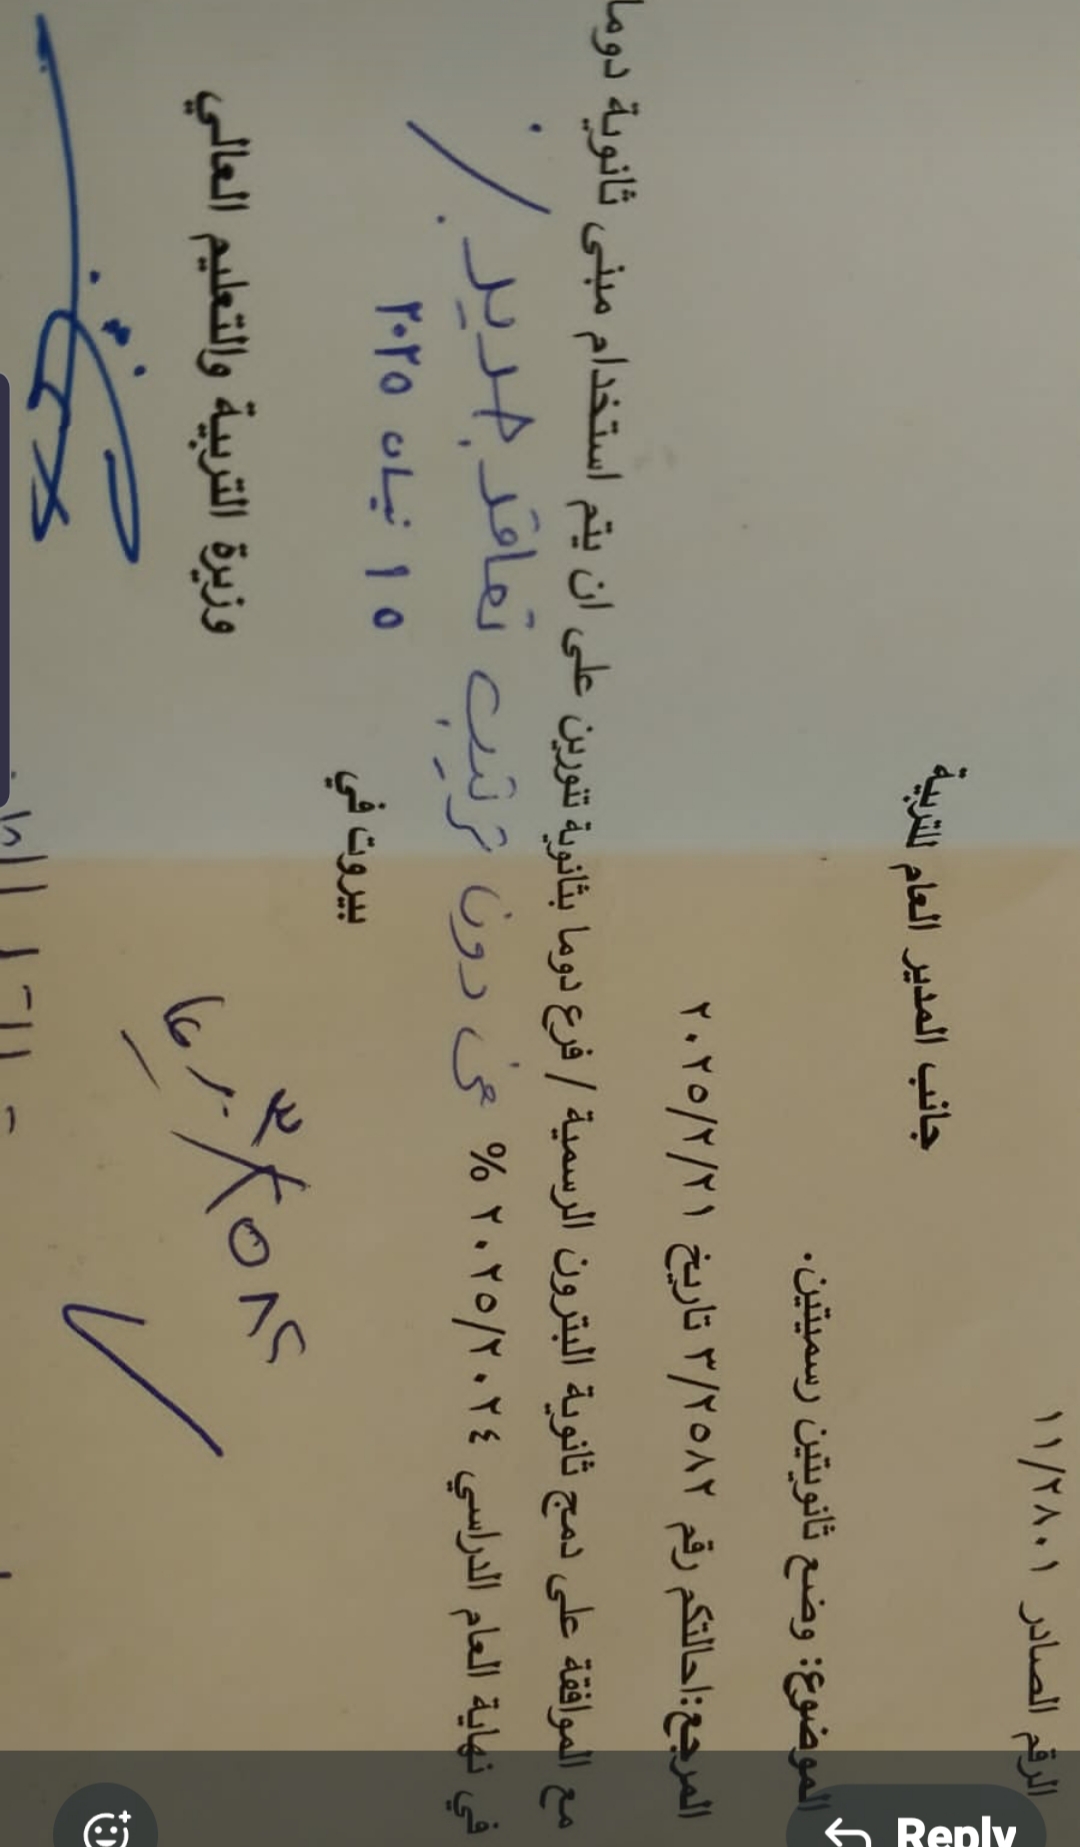 الرقم الصادر ١١/٢٨٠١
جانب المدير العام للتربية
الموضوع: وضع ثانويتين رسميتين.
المرجع: احالتكم رقم ٣/٢٥٨٢ تاريخ ٢٠٢٥/٢/٢١
مع الموافقة على دمج ثانوية البترون الرسمية / فرع دوما بثانوية تنورين على ان يتم استخدام مبنى ثانوية دوما
في نهاية العام الدراسي ٢٠٢٥/٢٠٢٤ % على دون ترتيب تعاقد جديد.
بيروت في
١٥ نيسان ٢٠٢٥
وزيرة التربية والتعليم العالي
٣/٢٥٨٢
Reply